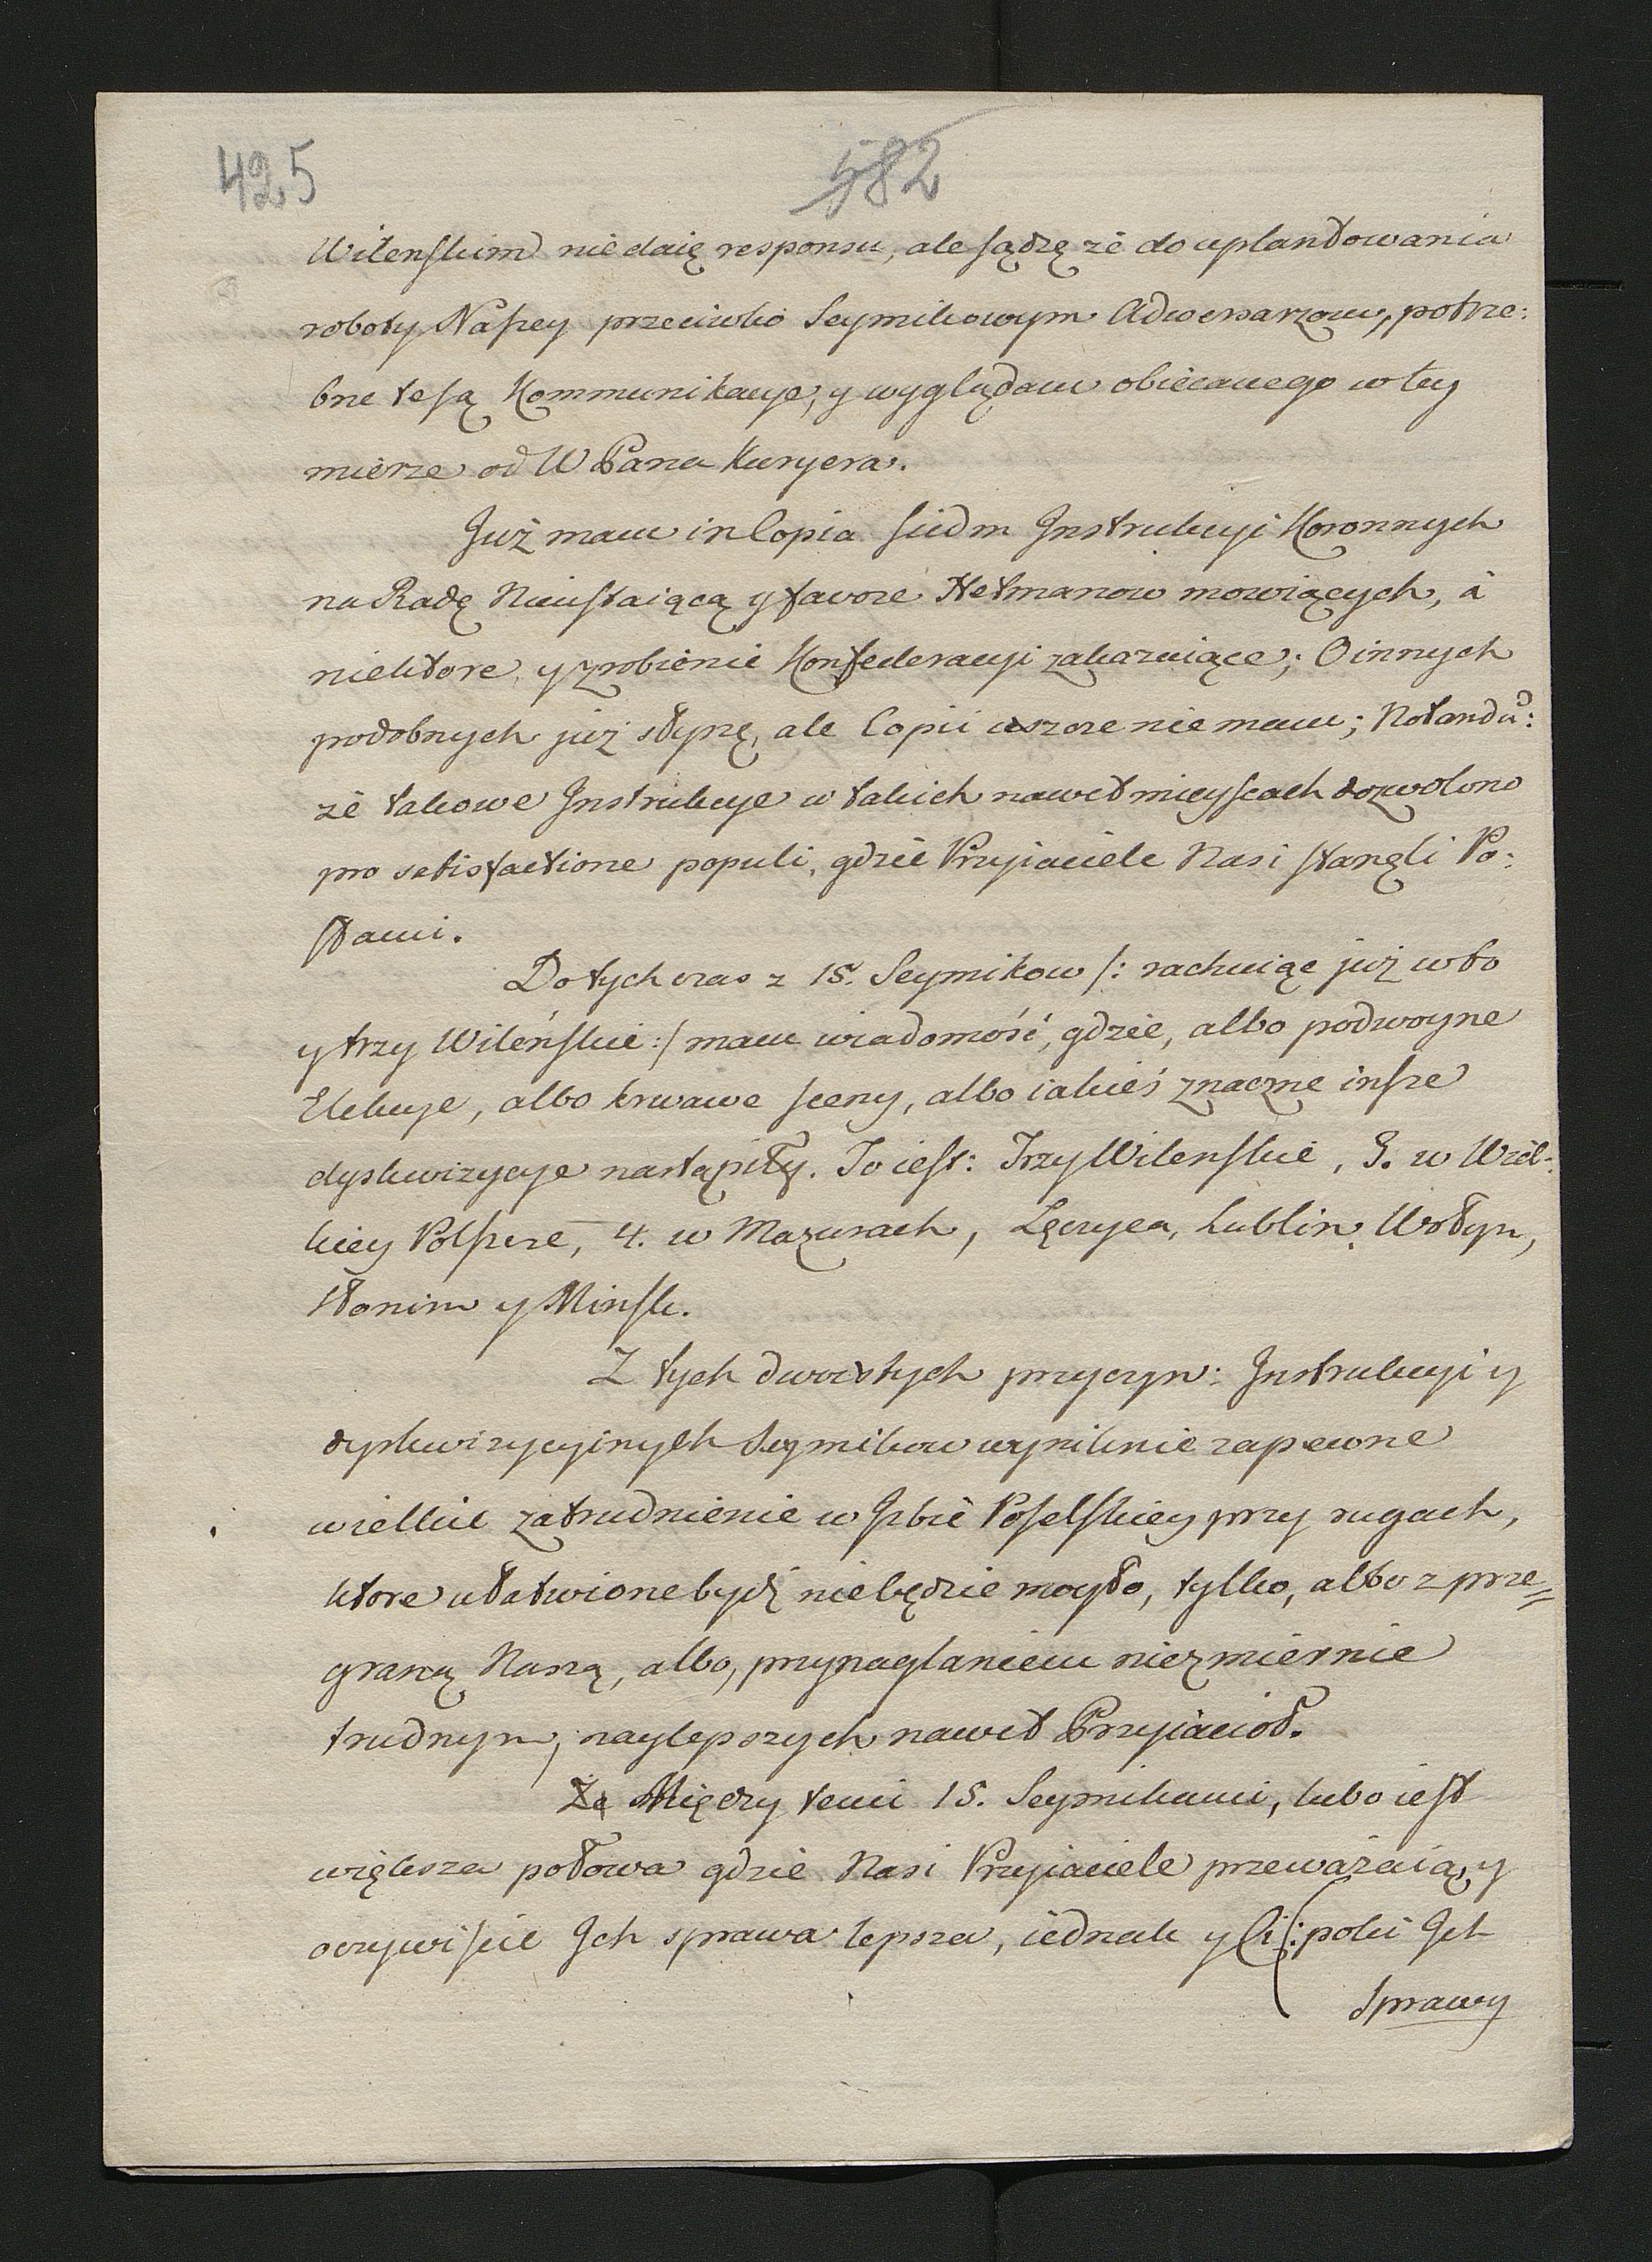 425
582
Wilenskim nie daię responsu, ale sądzę że do uplantowania
roboty Naszey przeciwko Seymikowym Adwersarzom, potrze:
bne te są Kommunikacye, y wyglądam obiecanego w tey
mierze od W Pana Kuryera.
Już mam in Copia siedm Instrukcyi Koronnych
na Radę Nieustaiącą y favore Hetmanow mowiących, à
niektore y zrobienie Konfederacyi zakazuiące; O innych
podobnych już słyszę, ale Copii ieszcze nie mam; Notandũ:
że takowe Instrukcye w takich nawet mieyscach dozwolono
pro satisfactione populi, gdzie Przyiaciele Nasi stanęli Po:
słami.
Dotychczas z 15. Seymikow /: rachuiąc już w to
y trzy Wileńskie :/ mam wiadomość, gdzie, albo podwoyne
Elekcye, albo krwawe sceny, albo iakieś znaczne insze
dyskwizycye nastąpiły. To iest: Trzy Wilenskie, 3. w Wiel-
kiey Polszcze, 4. w Mazurach, Łęczyca, Lublin, Wołyn,
Słonim y Minsk.
Z tych dwoistych przyczyn: Instrukcyi y
dyskwizycyinych Seymikow wyniknie zapewne
wielkie zatrudnienie w Izbie Poselskiey przy rugach,
ktore ułatwione bydź nie będzie mogło, tylko, albo z prze=
graną Naszą, albo, przynaglaniem niezmiernie
trudnym, naylepszych nawet Przyiacioł.
Że Między temi 15. Seymikami, lubo iest
większa połowa gdzie Nasi Przyiaciele przeważaią, y
oczywiście Ich sprawa lepsza, iednak y Ci /: poki Ich
Sprawy